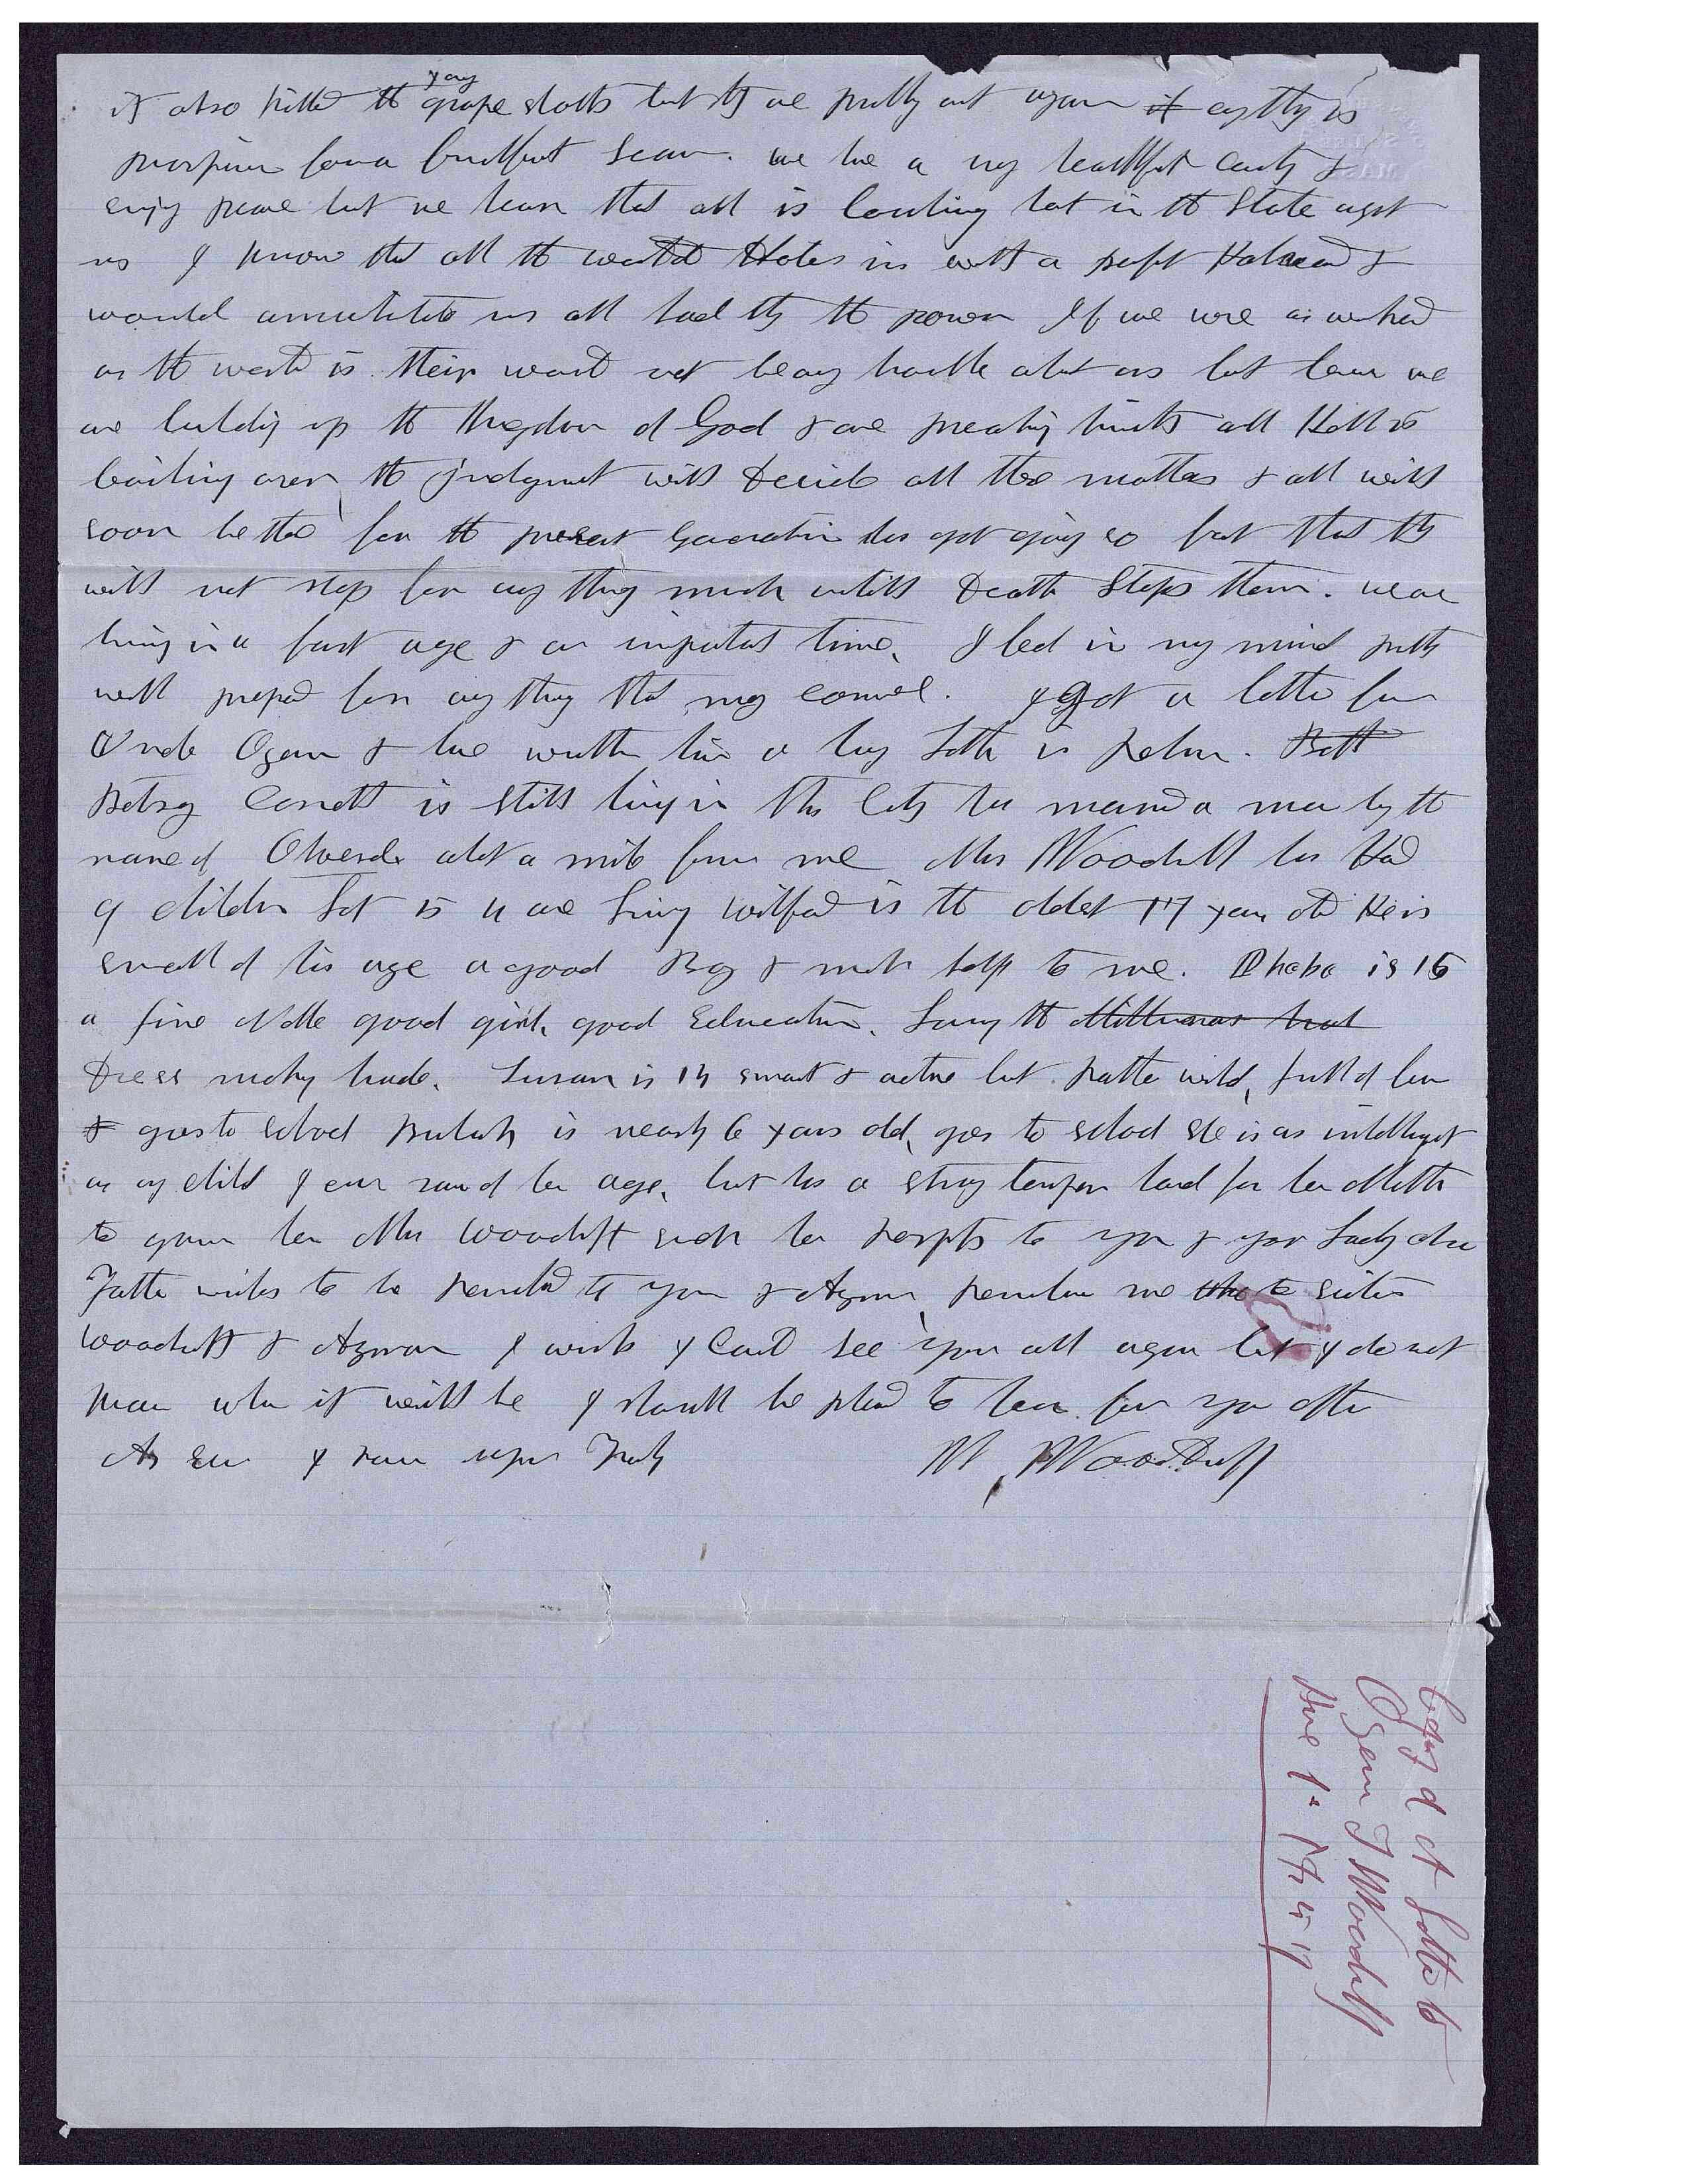 it also killed the young grape shoots but they are putting out again it every thing is
promising for a fruitful season. we have a very healthful country &
enjoy peace but we learn that all is boiling hot in the State against
us I know that all the world Hates us with a perfect Hatred &
would annihilate us all had they the power If we were as wicked
as the world is their would not be any trouble about us but because we
are building up the Kingdom of God & are preaching truth all Hell is
boiling over the judgment will Decide all these matters & all will
soon be there for the present Generation has got going so fast that they
will not stop for any thing much untill Death Stops them. we are
living in a fast age & an important time, I feel in my mind pretty
well prepared for any thing that may come. I got a letter from
Uncle Ozem & have written him a long Letter in return. Bett
Betsy Cossett is still living in this City has married a man by the
name of about a mile from me Mrs Woodruff has Had
9 children but 4 are Living Wilford is the oldest 17 years old He is
small of his age a good Boy & much help to me. Phebe is 15
a fine Noble good girl, good Education, Learning the
Dress making trade, Susan is 14 smart & active but rather wild, full of fun
& goes to school Bulah is nearly 6 years old, goes to school she is as intelligent
as any child I ever saw of her age, but has a strong temper hard for her Mother
to govern her Mrs Woodruff sends her respects to you & your Lady also
Father wishes to be remembered to you & Azmon, remember me to Sister
Woodruff & Azmon I wish I Could see you all again but I do not
know when it will be I should be pleased to hear from you often
As ever I remain yours Truly W. Woodruff
Copy of A Letter to
Ozem T Woodruff
June 1st 1857